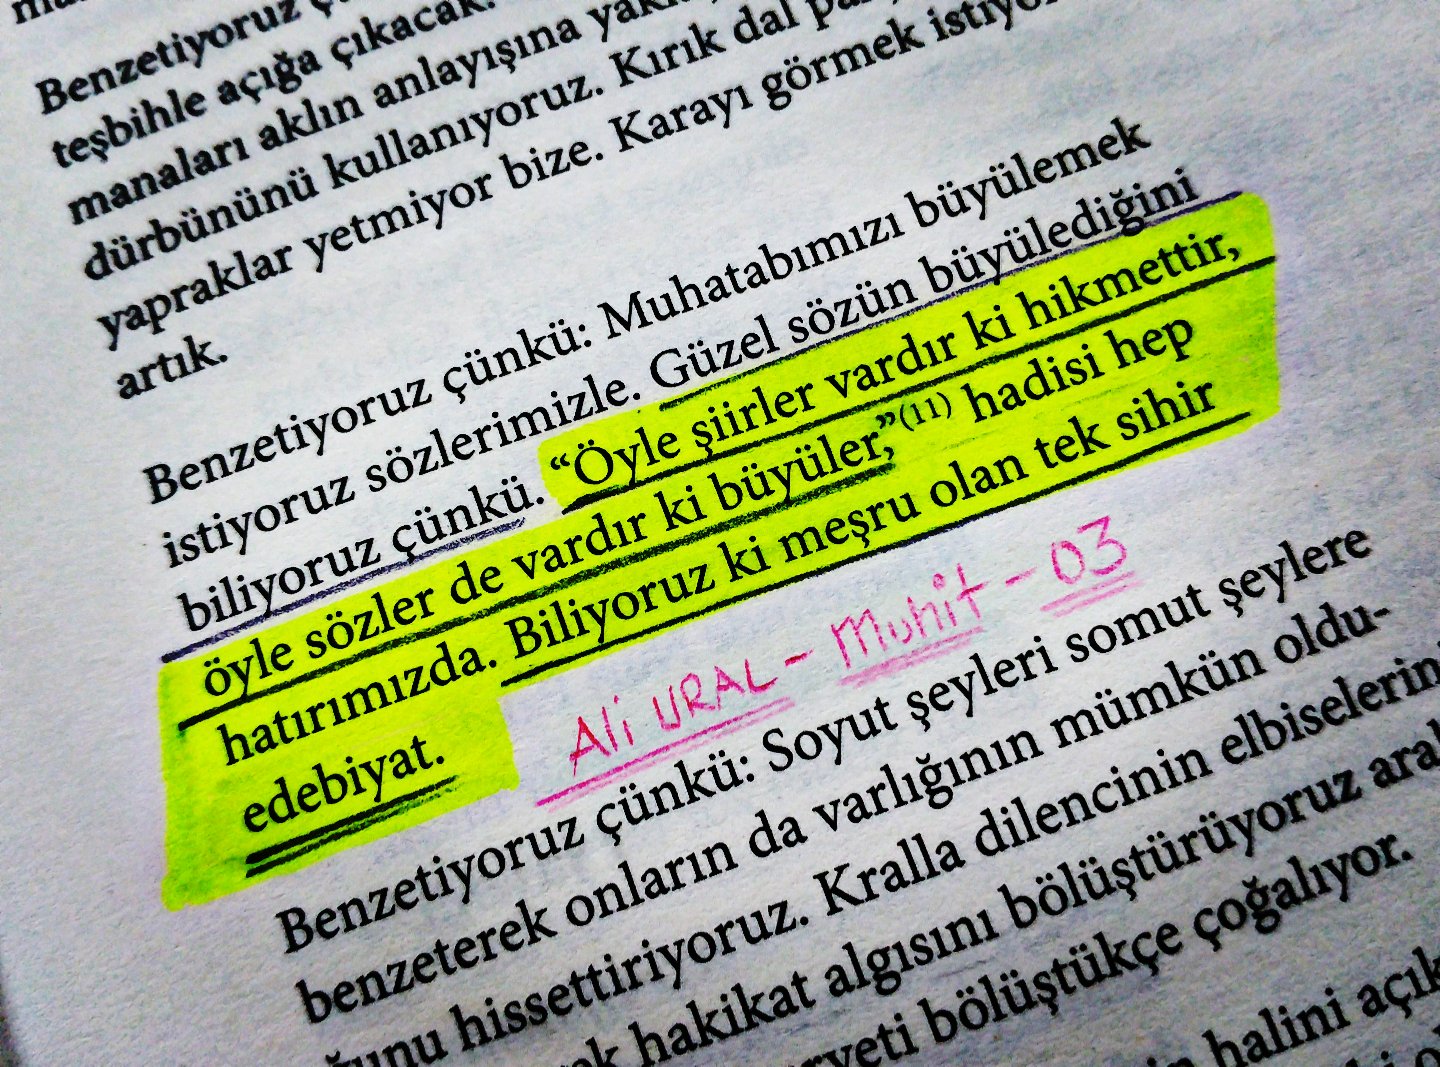 Benzetiyoruz
teşbihle açığa çıkacak.
manaları aklın anlayışına
dürbününü kullanıyoruz. Kırık dal
yapraklar yetmiyor bize. Karayı görmek
artık.
Benzetiyoruz çünkü: Muhatabımızı büyülemek
istiyoruz sözlerimizle. Güzel sözün büyülediğini
biliyoruz çünkü. “Öyle şiirler vardır ki hikmettir,
öyle sözler de vardır ki büyüler,”(11) hadisi hep
hatırımızda. Biliyoruz ki meşru olan tek sihir
edebiyat.
Ali URAL - Muhit - 03
Benzetiyoruz çünkü: Soyut şeyleri somut şeylere
benzeterek onların da varlığının mümkün oldu-
ğunu hissettiriyoruz. Kralla dilencinin elbiselerin
hakikat algısını bölüştürüyoruz
bölüştükçe çoğalıyor.
halini